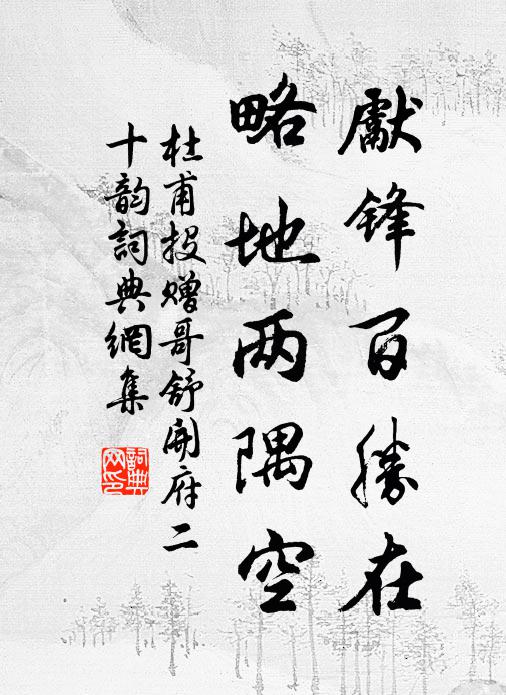 獻鋒百勝在
略地两隅空
杜甫投贈哥舒開府二
十韵詞典網集
詞典网印